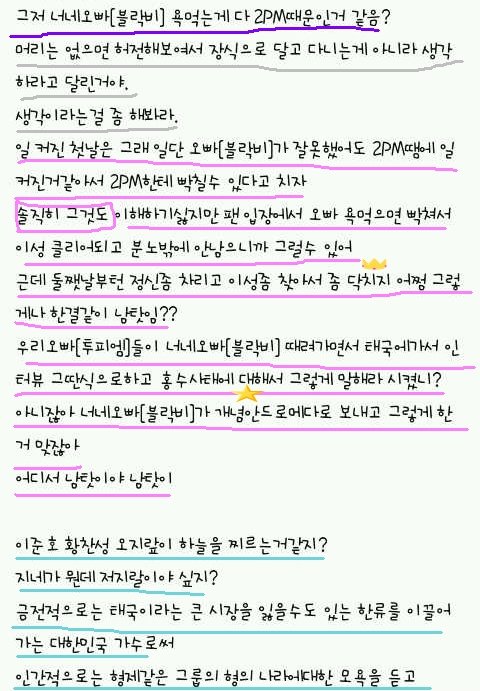 그저 너네오빠[블락비] 욕먹는게 다 2PM때문인거 같음?
머리는 없으면 허전해보여서 장식으로 달고 다니는게 아니라 생각
하라고 달린거야.
생각이라는걸 좀 해봐라.
일 커진 첫날은 그래 일단 오빠[블락비]가 잘못했어도 2PM땜에 일
커진거같아서 2PM한테 빡칠수 있다고 치자
솔직히 그것도 이해하기싫지만 팬 입장에서 오빠 욕먹으면 빡쳐서
이성 클리어되고 분노밖에 안남으니까 그럴수 있어
근데 둘쨋날부턴 정신좀 차리고 이성좀 찾아서 좀 닥치지 어쩡 그렇
게나 한결같이 남탓임??
우리오빠[투피엠]들이 너네오빠[블락비] 때려가면서 태국에가서 인
터뷰 그딴식으로하고 홍수사태에 대해서 그렇게 말해라 시켰니?
아니잖아 너네오빠[블락비]가 개념안드로메다로 보내고 그렇게 한
거 맞잖아
어디서 남탓이야 남탓이
이준호 황찬성 오지랖이 하늘을 찌르는거같지?
지네가 뭔데 저지랄이야 싶지?
금전적으로는 태국이라는 큰 시장을 잃을수도 있는 한류를 이끌어
가는 대한민국 가수로써
인간적으로는 형제같은 그룹의 형의 나라에대한 모욕을 듣고